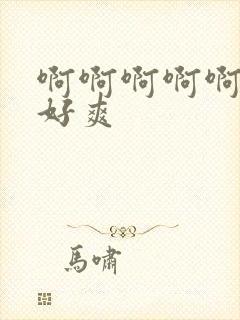 啊啊啊啊啊
好爽
馬嘯